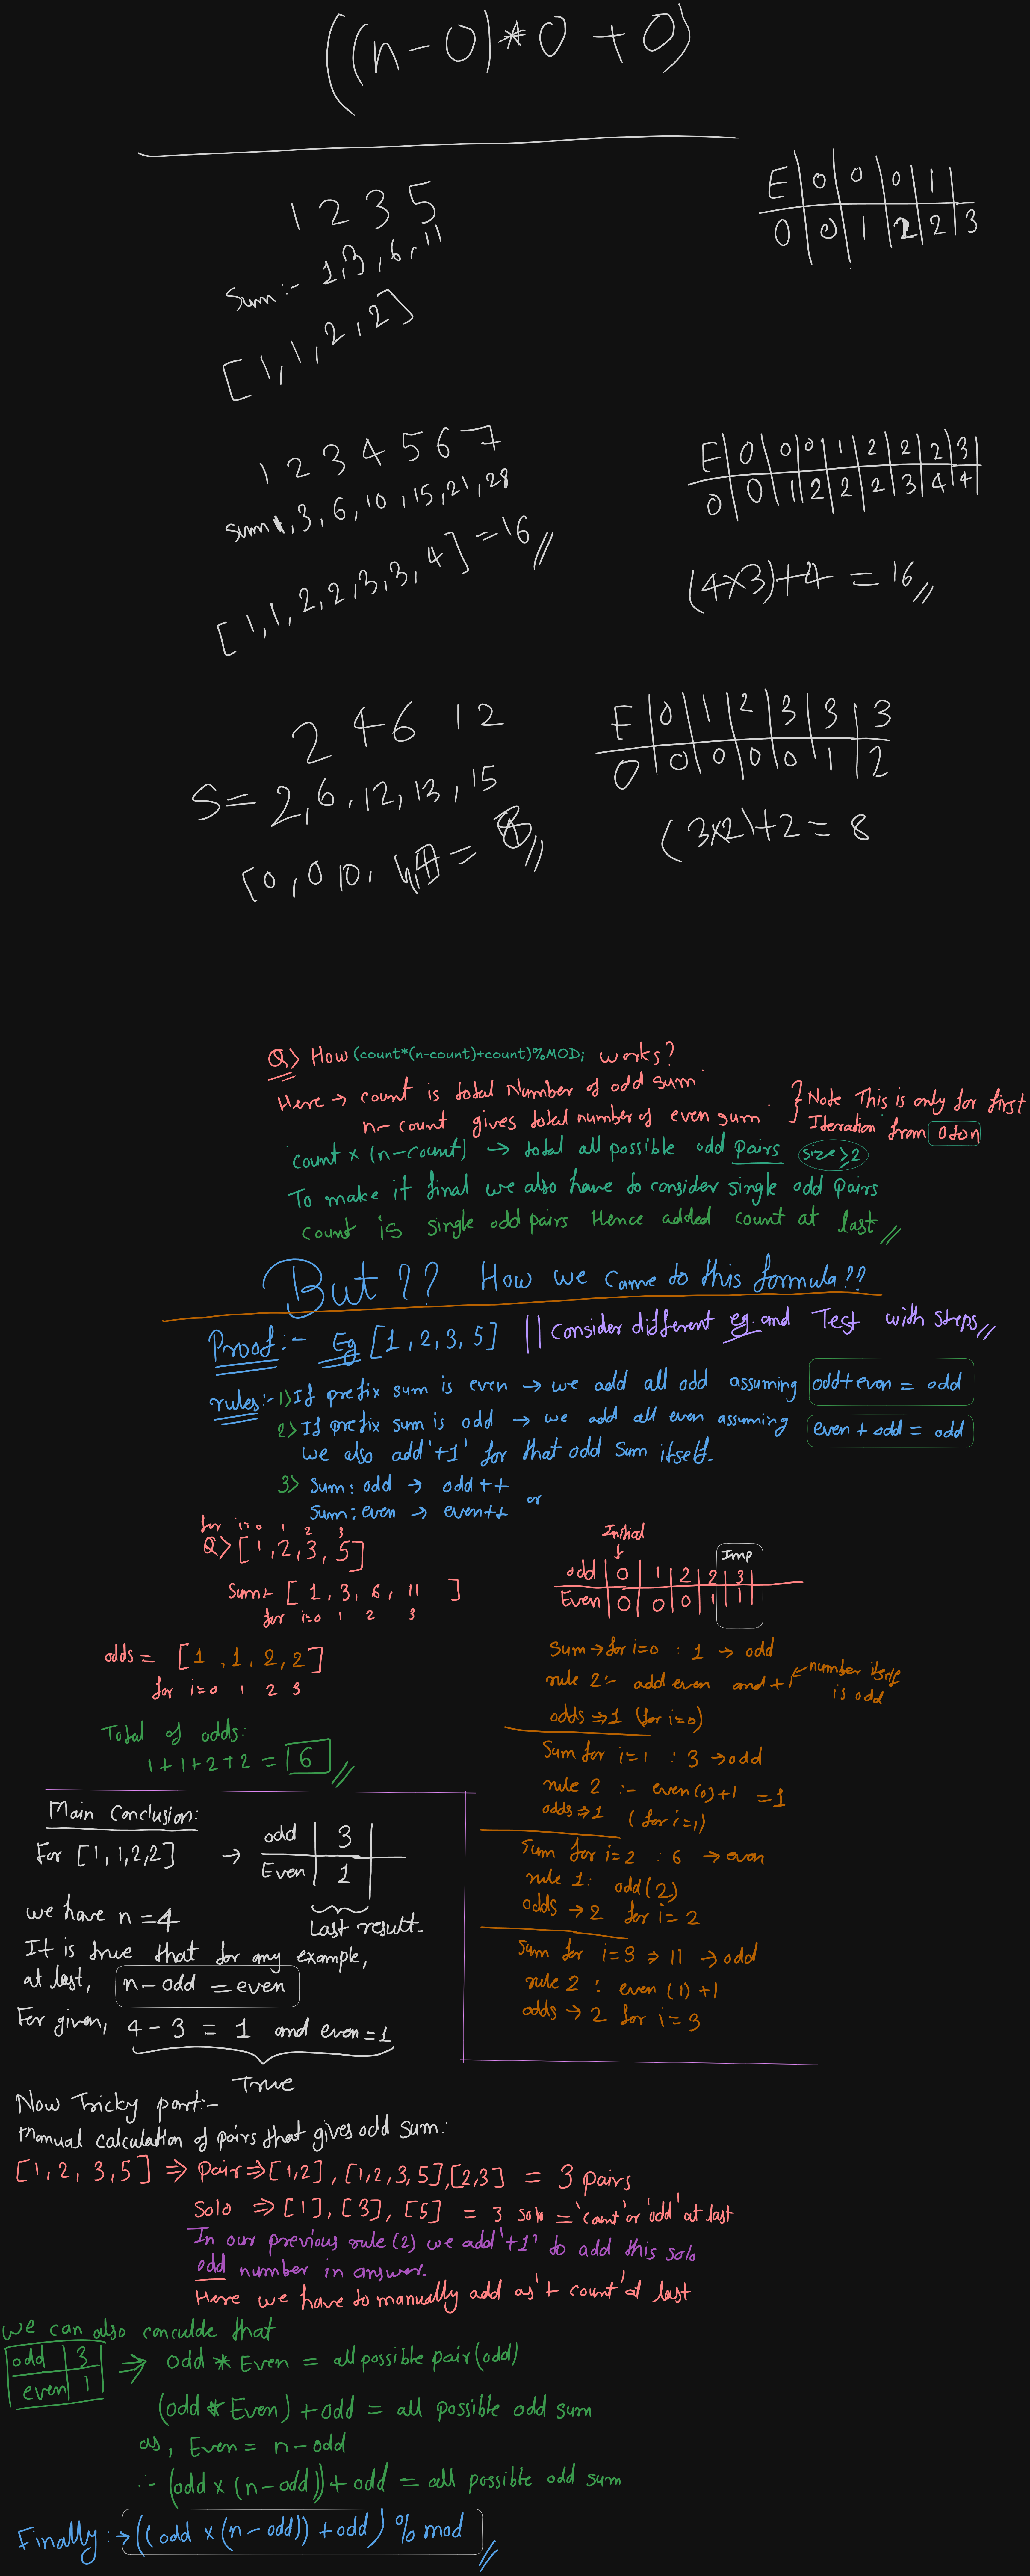 ((n-0)*0+0)
E|0|0|0|1
0|0|1|2|2|3
1 2 3 5
Sum:- 1,3,6,11
[1,1,2,2]
1 2 3 4 5 6 7
sum 1,3,6,10,15,21,28
[1,1,2,2,3,3,4] = 16//
E|0|0|0|1|2|2|2|3|
0|0|1|2|2|2|3|4|4|
(4×3)+4 = 16//
2 4 6 1 2
S = 2,6,12,13,15
E|0|1|2|3|3|3
O|0|0|0|0|1|2
(3×2)+2 = 8
Q> How (count*(n-count)+count)%MOD; works?
Here → count is total Number of odd sum.
n- count gives total number of even sum.
} Note This is only for first
Iteration from 0 to n
count × (n-count) → total all possible odd pairs size≥2
To make it final we also have to consider single odd pairs
count is single odd pairs Hence added count at last//
But ?? How we came to this formula??
Proof:- Eg [1,2,3,5] || Consider different eg. and Test with steps//
rules:- 1>If prefix sum is even → we add all odd assuming odd+even = odd
2> If prefix sum is odd → we add all even assuming even + odd = odd
we also add '+1' for that odd sum itself.
3> Sum: odd → odd ++
or
Sum: even → even++
for i=0 1 2 3
Q>[1,2,3,5]
Sum:- [1, 3, 6, 11 ]
for i=0 1 2 3
odds = [1,1,2,2]
for i=0 1 2 3
Total of odds:
1+1+2+2 = 6//
Initial
Imp
odd|0|1|2|2|3|
Even|0|0|0|1|1|
Sum→for i=0 : 1 → odd
rule 2:- add even and +1 ← number itself is odd
odds ⇒ 1 (for i=0)
Sum for i=1 : 3 → odd
rule 2 :- even(0)+1 = 1
odds ⇒ 1 (for i=1)
Sum for i=2 : 6 → even
rule 1: odd(2)
odds → 2 for i= 2
Sum for i=3 ⇒ 11 → odd
rule 2 : even (1) +1
odds → 2 for i= 3
Main Conclusion:
For [1,1,2,2] →
odd | 3 |
Even | 1 |
Last result.
we have n = 4
It is true that for any example,
at last, n-odd = even
For given, 4 - 3 = 1 and even = 1
True
Now Tricky part:-
Manual calculation of pairs that gives odd sum:
[1,2,3,5] ⇒ Pair⇒[1,2], [1,2,3,5],[2,3] = 3 pairs
Solo ⇒ [1], [3], [5] = 3 solo = 'count' or 'odd' at last
In our previous rule (2) we add '+1' to add this solo
odd number in answer.
Here we have to manually add as '+ count' at last
We can also conculde that
odd | 3
even | 1
⇒ odd * Even = all possible pair (odd)
(odd * Even) + odd = all possible odd sum
as, Even = n-odd
∴ (odd × (n-odd)) + odd = all possible odd sum
Finally:→ ((odd × (n-odd)) + odd) % mod//